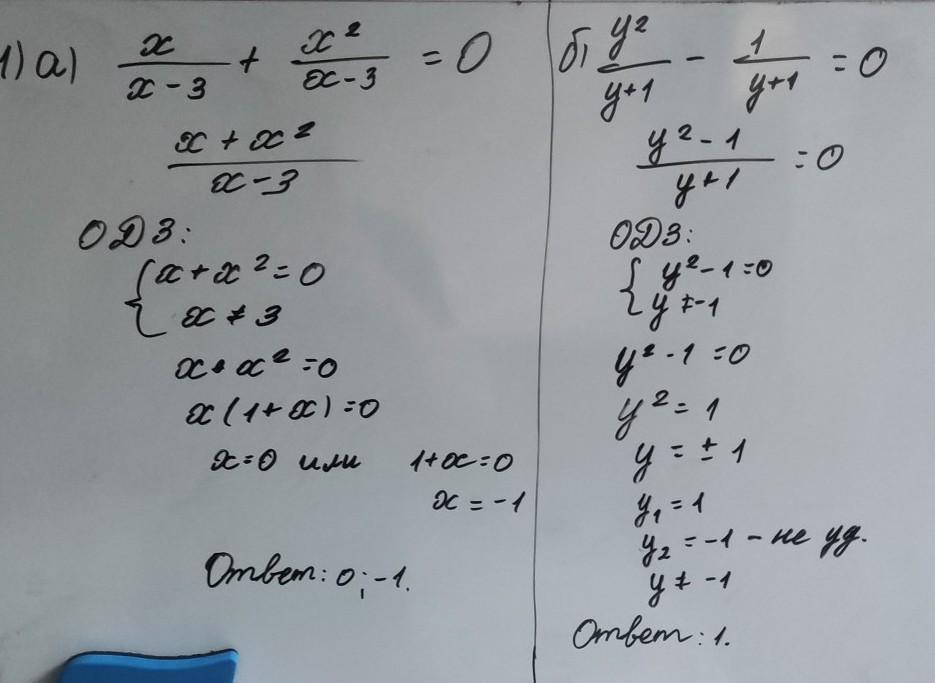 1) а) x/(x-3) + x²/(x-3) = 0
(x + x²)/(x-3)
ОДЗ:
{ x + x² = 0
x ≠ 3
x + x² = 0
x(1 + x) = 0
x=0 или 1+x=0
x = -1
Ответ: 0; -1.
б) y²/(y+1) - 1/(y+1) = 0
(y² - 1)/(y+1) = 0
ОДЗ:
{ y² - 1 = 0
y ≠ -1
y² - 1 = 0
y² = 1
y = ± 1
y₁ = 1
y₂ = -1 - не уд.
y ≠ -1
Ответ: 1.